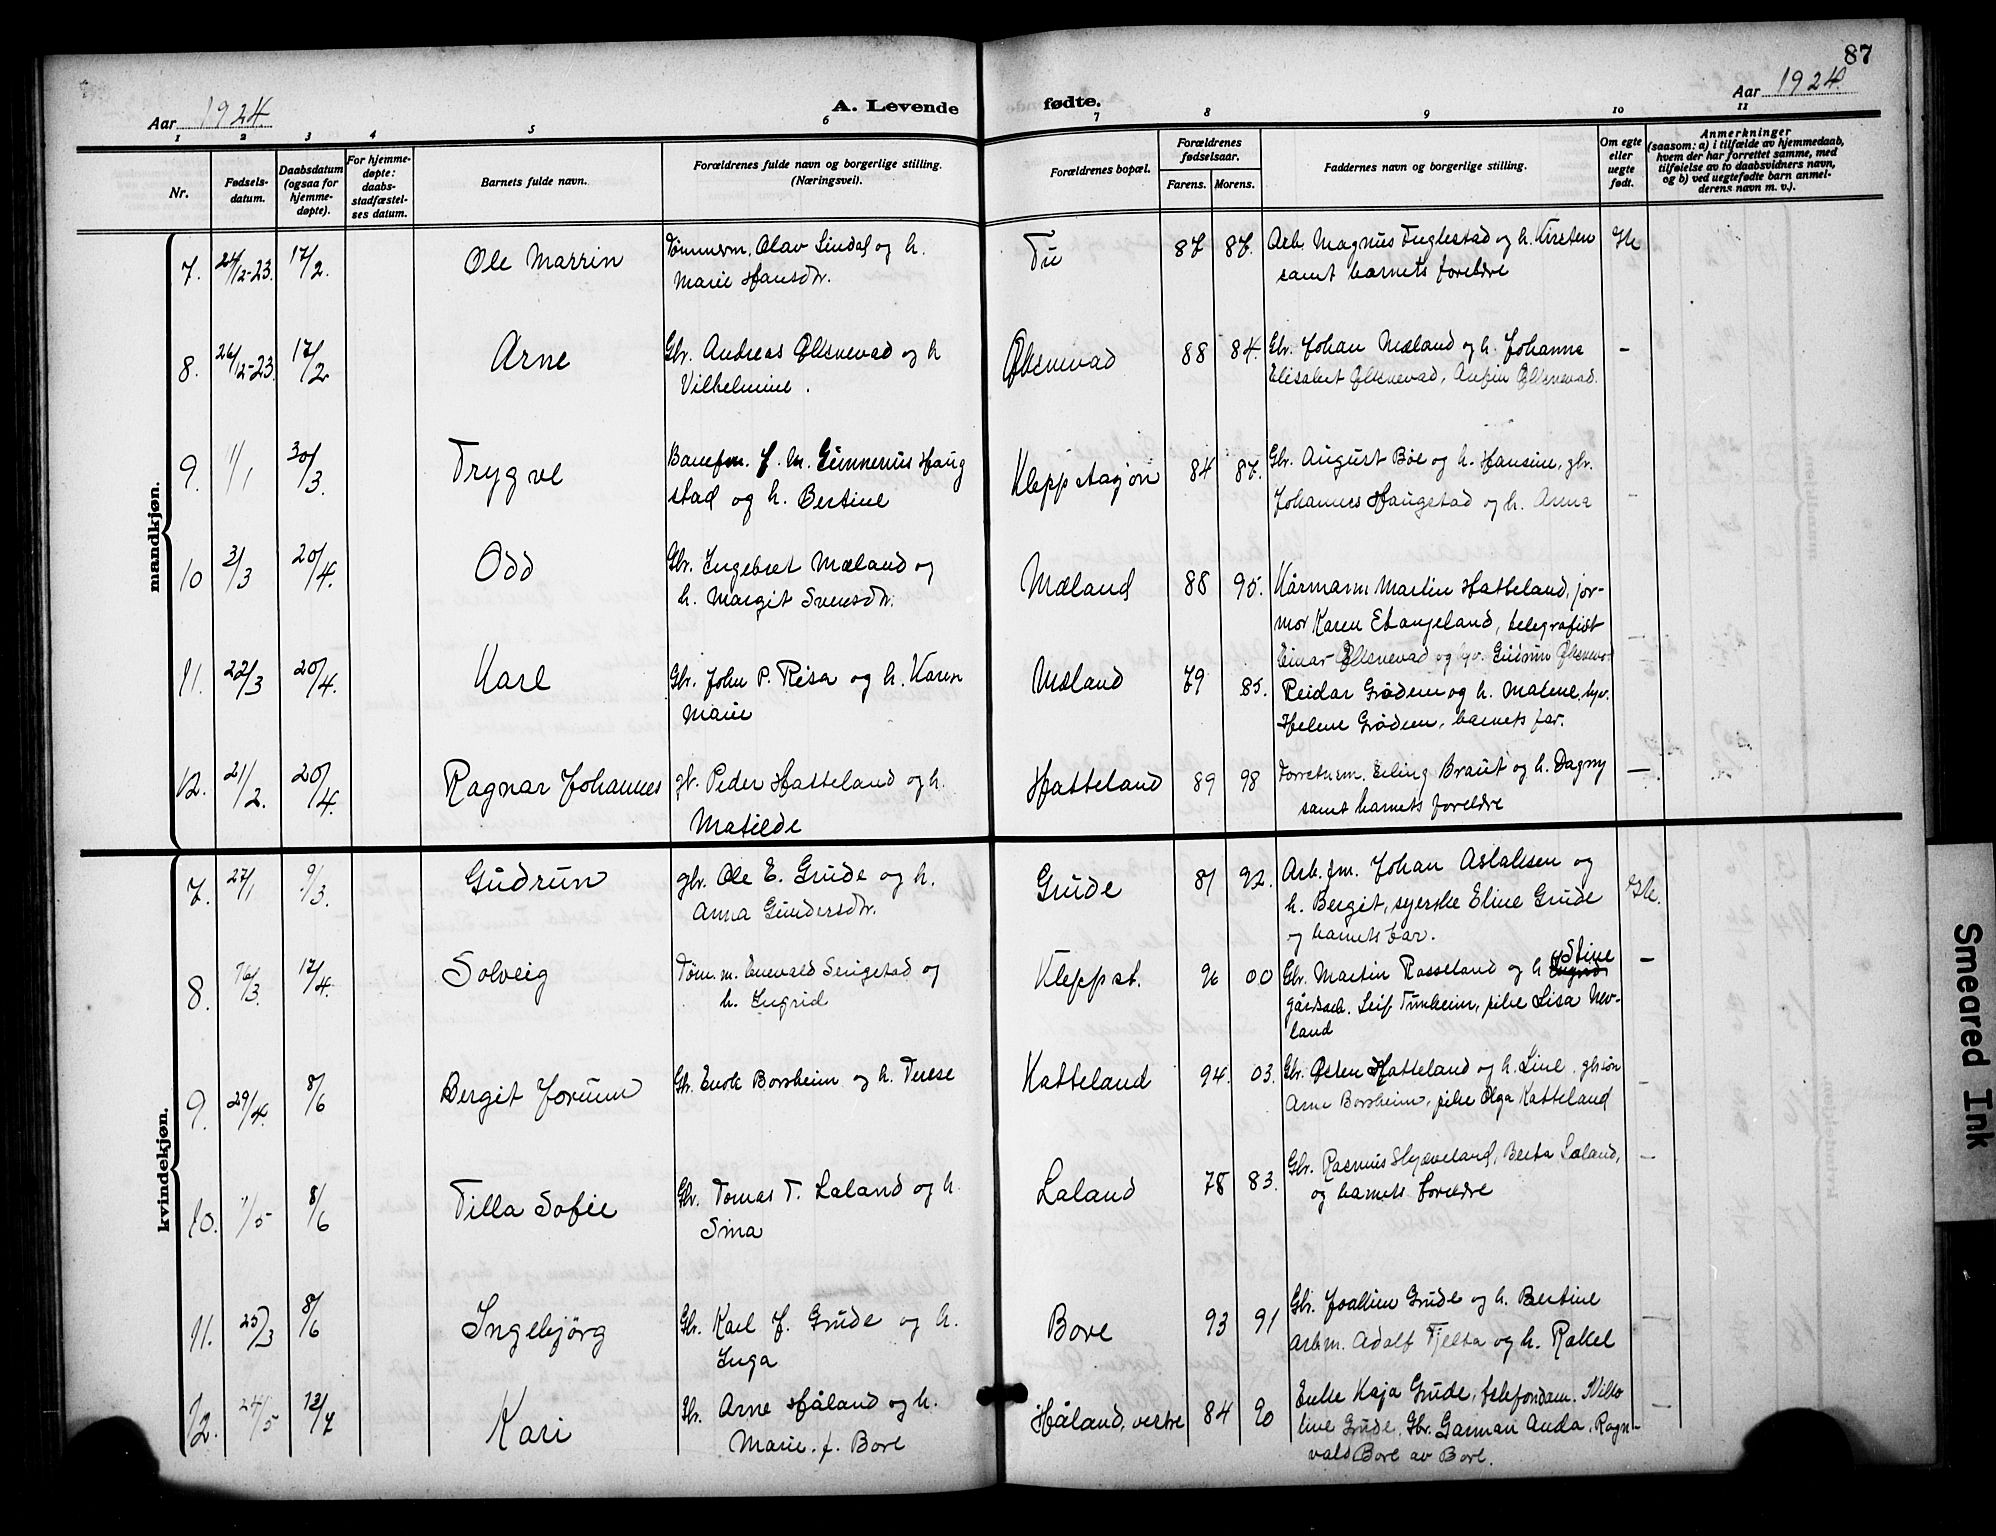 87
Aar 1924.
A. Levende
fødte.
Aar 1924.
1 2 3 4 5 6 7 8 9 10 11
Nr.
Fødsels-
datum.
Daabsdatum
(ogsaa for
hjemme-
døpte).
For hjemme-
døpte:
daabs-
stadfæstel-
ses datum.
Barnets fulde navn.
Forældrenes fulde navn og borgerlige stilling.
(Næringsvei).
Forældrenes bopæl.
Forældrenes
fødselsaar.
Farens. Morens.
Faddernes navn og borgerlige stilling.
Om egte
eller
uegte
født.
Anmerkninger
(saasom: a) i tilfælde av hjemmedaab,
hvem der har forrettet samme, med
tilføielse av to daabsvidners navn,
og b) ved uegtefødte barn anmel-
derens navn m. v.).
mandkjøn.
7. 24/12-23. 17/2. Ole Marrin Tømmerm. Olav Lindal og h. Tu 87 87. Arb. Magnus Fuglestad og h. Kirsten
Marie Hansdtr. samt barnets foreldre
8. 26/12-23. 17/2 Arne Gbr. Andreas Øksnevad og h Øksnevad 88 84. Gbr. Johan Mæland og h. Johanna –
Vilhelmine. Elisabet Øksnevad, Anfin Øksnevad.
9. 1/1 30/3. Trygve Banefm. J. M. Gunnerius Haug Klepp stasjon 84 87. Gbr. August Bøe og h. Hansine, gbr.
stad og h. Bertine Johannes Haugstad og h. Anna –
10 3/3 20/4. Odd Gbr. Ingebret Mæland og Mæland 88 95. Kårmann Martin Hatteland, jor-
h. Margit Svensdtr. mor Karen Etangeland, telegrafist –
11. 22/3 20/4. Karl Gbr. John P. Risa og h. Karen Mæland 79 85. Einar Øksnevad og hv. Gudrun Øksnevad
Marie Reidar Grødem og h. Malene, hv.
Helene Grødem, barnets far.
12. 21/2. 20/4. Ragnar Johannes gbr. Peder Hatteland og h. Hatteland 89 98 Forretnm. Erling Braut og h. Dagny –
Matilde samt barnets foreldre
kvindekjøn.
7. 27/1 9/3. Gudrun gbr. Ole E. Grude og h. Grude 81 92. Arb.fm. Johan Aslaksen og
Anna Gundersdtr. h. Bergit, syerske Eline Grude
og barnets far.
8. 16/3. 17/4. Solveig Tøm.m. Enevald Serigstad og Kleppst. 96 00 Gbr. Martin Rasseland og h Stine –
h. Ingrid gårdsarb. Leif Tunheim, pike Lisa Nev-
land
9. 29/4. 8/6 Bergit Jorunn Gbr. Enok Borsheim og h. Terese Katteland 94. 03. Gbr. Osten Hatteland og h. Line, gbsøn –
Arne Borsheim, pike Olga Katteland
10. 1/5 8/6 Tilla Sofie Gbr. Tomas T. Laland og h. Laland 78 83. Gbr. Rasmus Skjæveland, Berta Laland, –
Sina og barnets foreldre
11. 25/3 8/6 Ingebjørg Gbr. Karl J. Grude og h. Bore 93 91 Gbr. Joakim Grude og h. Bertine –
Inga Arbm. Adolf Tjelta og h. Rakel
12. 24/5 13/7 Kari Gbr. Arne Håland og h. Håland, vestre 84 90 Enke Kaja Grude, telefondam. Nilla –
Marie f. Bore line Grude, Gbr. Garman Anda, Ragn-
vald Bore av Bore.
Smeared Ink